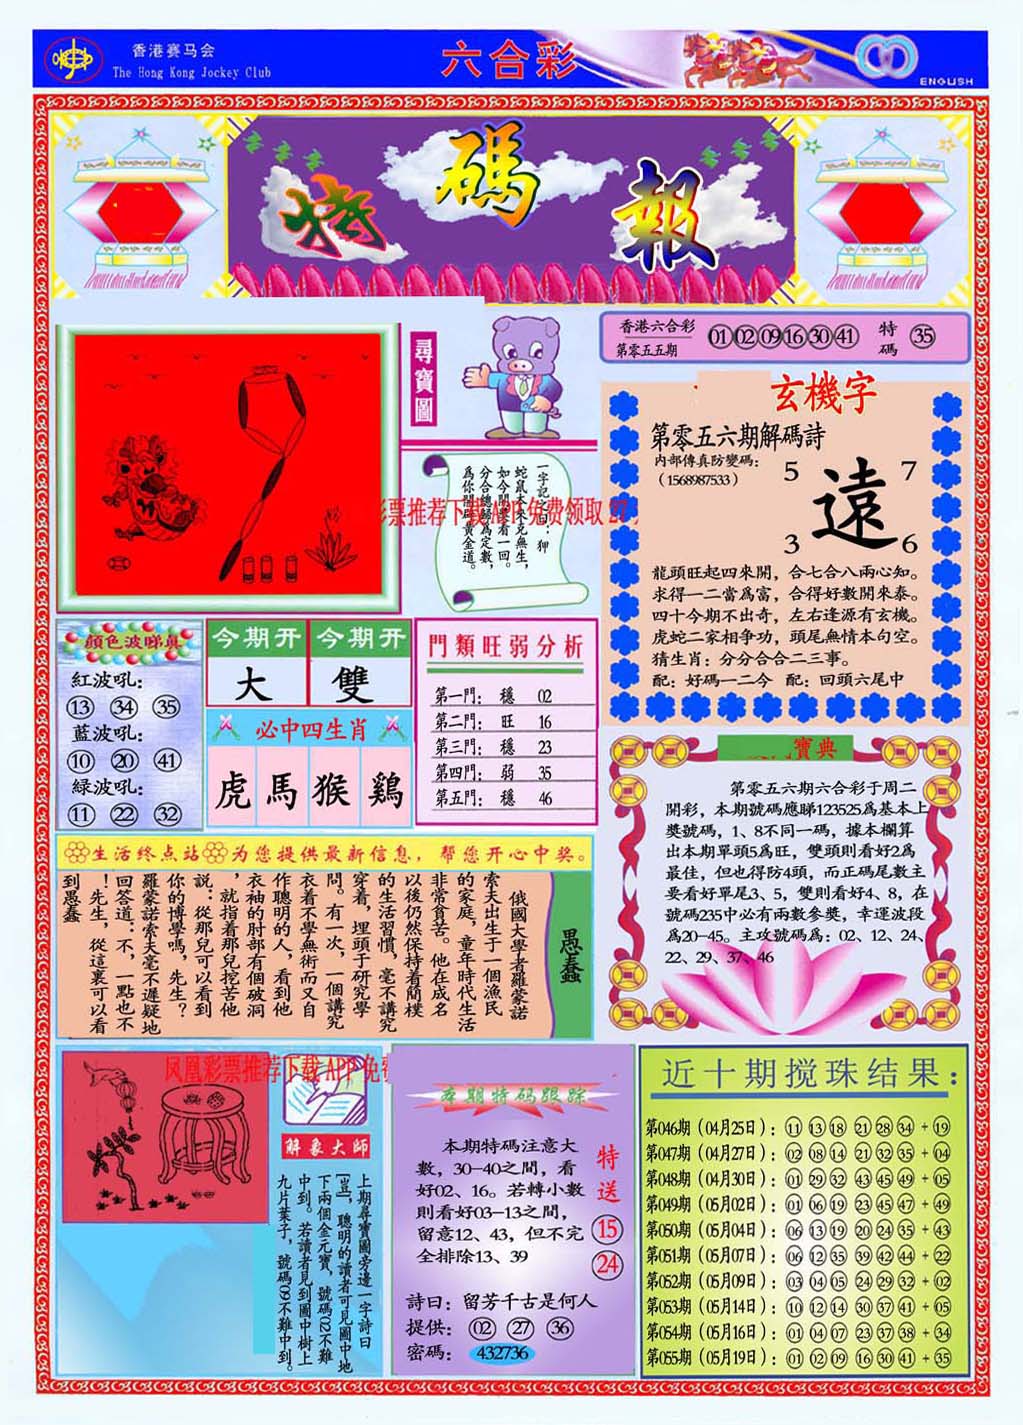 香港赛马会
The Hong Kong Jockey Club
六合彩
ENGLISH
特碼報
尋寶圖
香港六合彩
第零五五期
01 02 09 16 30 41
特碼
35
一字記之曰：狎
蛇鼠本來克無生，
如今開要看一回。
分合總歸爲定數，
爲你開闢黃金道。
彩票推荐下载APP免费领取27
玄機字
第零五六期解碼詩
内部傳真防變碼：
（1568987533）
5 7
遠
3 6
龍頭旺起四來開，合七合八兩心知。
求得一二當爲富，合得好數開來泰。
四十今期不出奇，左右逢源有玄機。
虎蛇二家相争功，頭尾無情本句空。
猜生肖：分分合合二三事。
配：好碼一二今 配：回頭六尾中
顏色波啼真
紅波吼：
13 34 35
藍波吼：
10 20 41
緑波吼：
11 22 32
今期开 今期开
大 雙
必中四生肖
虎 馬 猴 鷄
門類旺弱分析
第一門： 穩 02
第二門： 旺 16
第三門： 穩 23
第四門： 弱 35
第五門： 穩 46
寶典
第零五六期六合彩于周二
開彩，本期號碼應睇123525爲基本上
獎號碼，1、8不同一碼，據本欄算
出本期單頭5爲旺，雙頭則看好2爲
最佳，但也得防4頭，而正碼尾數主
要看好單尾3、5，雙則看好4、8，在
號碼235中必有兩數參獎，幸運波段
爲20-45。主攻號碼爲：02、12、24、
22、29、37、46
生活终点站 为您提供最新信息，帮您开心中奖。
愚蠢
俄國大學者羅蒙諾
索夫出生于一個漁民
的家庭，童年時代生活
非常貧苦。他在成名
以後仍然保持着簡樸
的生活習慣，毫不講究
穿着，埋頭于研究學
問。有一次，一個講究
衣着不學無術而又自
作聰明的人，看到他
衣袖的肘部有個破洞
，就指着那兒挖苦他
説：從那兒可以看到
你的博學嗎，先生？
羅蒙諾索夫毫不遲疑地
回答道：不，一點也不
！先生，從這裏可以看
到愚蠢
凤凰彩票推荐下载APP免费
解象大師
上期尋寶圖旁邊一字詩曰
[豈]，聰明的讀者可見圖中地
下兩個金元寶，號碼02不難
中到。若讀者見到圖中樹上
九片葉子，號碼09不難中到。
本期特码跟踪
本期特碼注意大
數，30-40之間，看
好02、16。若轉小數
則看好03-13之間，
留意12、43，但不完
全排除13、39
特送
15
24
詩曰：留芳千古是何人
提供： 02 27 36
密碼： 432736
近十期搅珠结果：
第046期（04月25日）：11 13 18 21 28 34 + 19
第047期（04月27日）：02 08 14 21 32 35 + 04
第048期（04月30日）：01 29 32 43 45 49 + 05
第049期（05月02日）：01 06 19 23 45 47 + 49
第050期（05月04日）：06 13 19 20 24 35 + 43
第051期（05月07日）：06 12 35 39 42 44 + 22
第052期（05月09日）：03 04 05 24 29 32 + 02
第053期（05月14日）：10 12 14 30 37 41 + 05
第054期（05月16日）：01 04 07 23 37 38 + 34
第055期（05月19日）：01 02 09 16 30 41 + 35